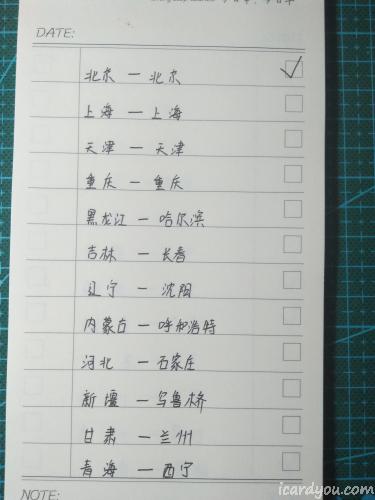 DATE:
北京 — 北京
上海 — 上海
天津 — 天津
重庆 — 重庆
黑龙江 — 哈尔滨
吉林 — 长春
辽宁 — 沈阳
内蒙古 — 呼和浩特
河北 — 石家庄
新疆 — 乌鲁桥
甘肃 — 兰州
青海 — 西宁
NOTE:
icardyou.com